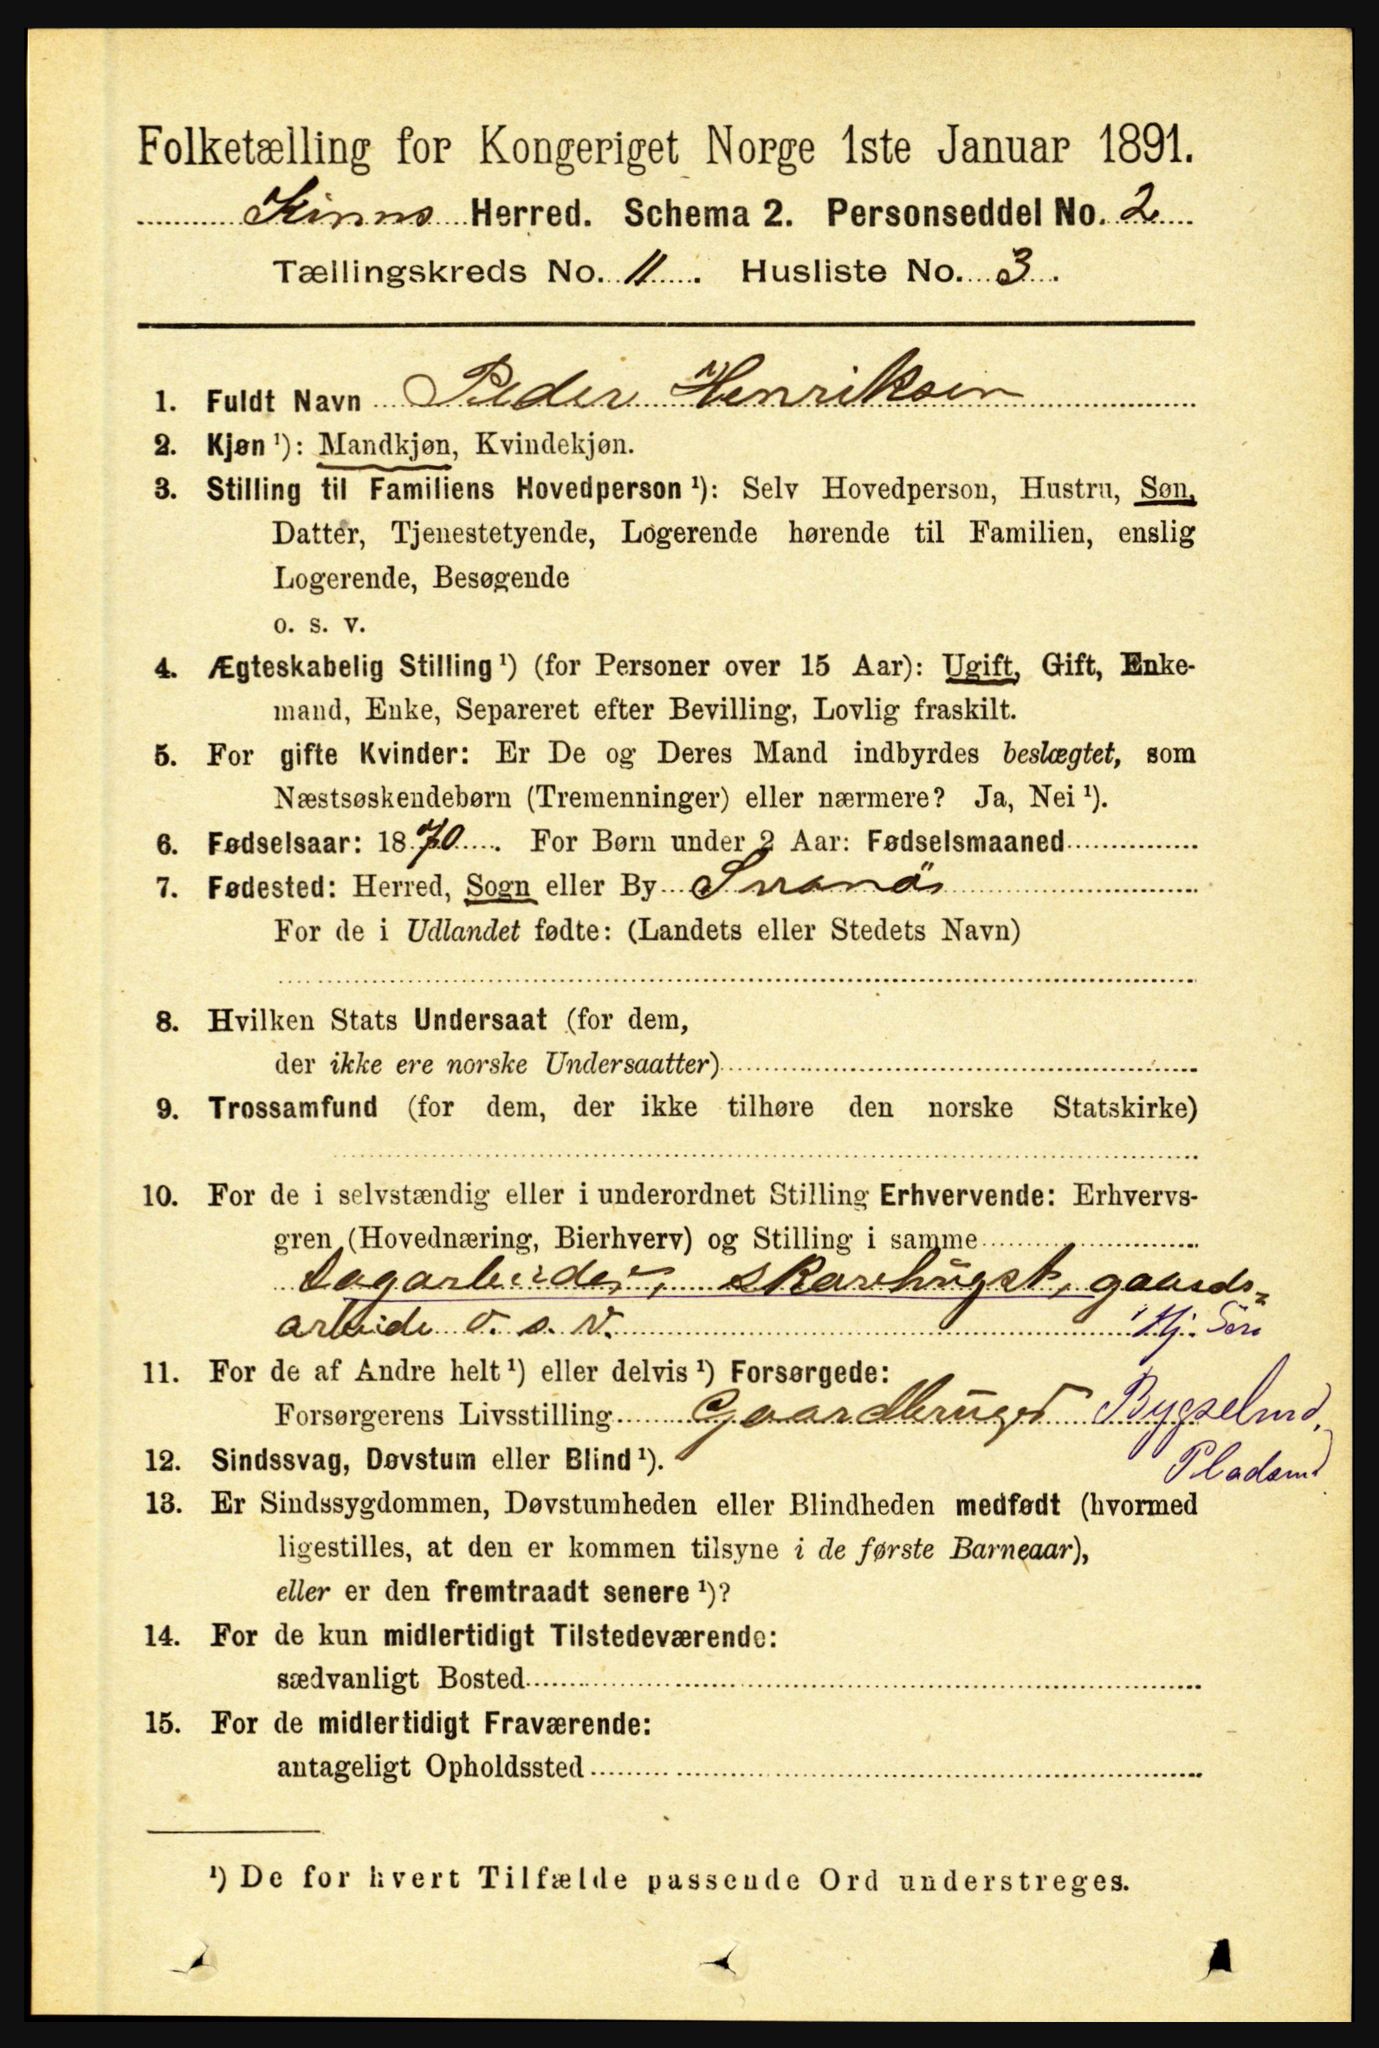 Folketælling for Kongeriget Norge 1ste Januar 1891.
Kinns Herred. Schema 2. Personseddel No. 2
Tællingskreds No. 11. Husliste No. 3.
1. Fuldt Navn Peder Henriksen
2. Kjøn ¹): Mandkjøn, Kvindekjøn.
3. Stilling til Familiens Hovedperson ¹): Selv Hovedperson, Hustru, Søn,
Datter, Tjenestetyende, Logerende hørende til Familien, enslig
Logerende, Besøgende
o. s. v.
4. Ægteskabelig Stilling ¹) (for Personer over 15 Aar): Ugift, Gift, Enke-
mand, Enke, Separeret efter Bevilling, Lovlig fraskilt.
5. For gifte Kvinder: Er De og Deres Mand indbyrdes beslægtet, som
Næstsøskendebørn (Tremenninger) eller nærmere? Ja, Nei ¹).
6. Fødselsaar: 1870. For Børn under 2 Aar: Fødselsmaaned
7. Fødested: Herred, Sogn eller By Svanö
For de i Udlandet fødte: (Landets eller Stedets Navn)
8. Hvilken Stats Undersaat (for dem,
der ikke ere norske Undersaatter)
9. Trossamfund (for dem, der ikke tilhøre den norske Statskirke)
10. For de i selvstændig eller i underordnet Stilling Erhvervende: Erhvervs-
gren (Hovednæring, Bierhverv) og Stilling i samme
Dagarbeider, skovhugst, gaards-
arbeide o. s. v. Hj. Søn
11. For de af Andre helt ¹) eller delvis ¹) Forsørgede:
Forsørgerens Livsstilling Gaardbruger Bygselmd,
Pladsmd
12. Sindssvag, Døvstum eller Blind ¹).
13. Er Sindssygdommen, Døvstumheden eller Blindheden medfødt (hvormed
ligestilles, at den er kommen tilsyne i de første Barneaar),
eller er den fremtraadt senere ¹)?
14. For de kun midlertidigt Tilstedeværende:
sædvanligt Bosted
15. For de midlertidigt Fraværende:
antageligt Opholdssted
¹) De for hvert Tilfælde passende Ord understreges.